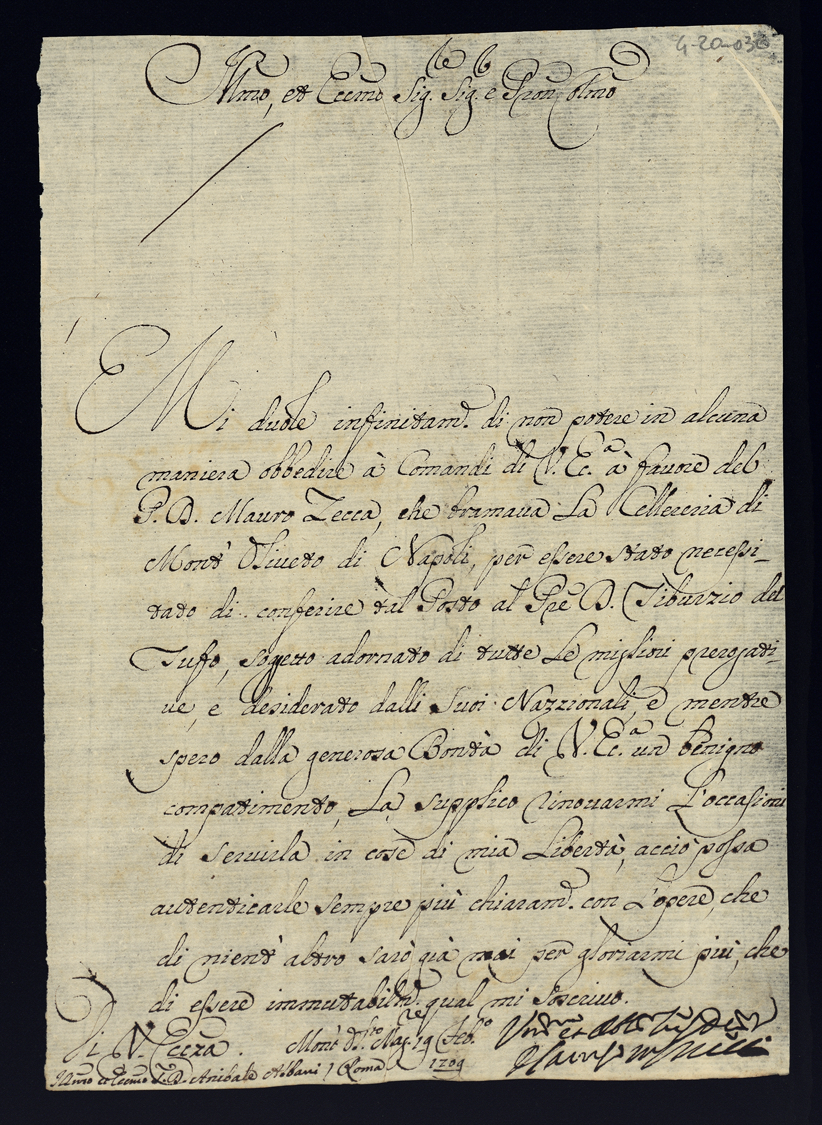 4-20-036
Illmo, et Eccmo Sig.re Sig.e Pron Colmo
Mi duole infinitam.e di non potere in alcuna
maniera obbedire à Comandi di V. Ec.a à favore del
P. D. Mauro Zecca, che bramaua La Cellereria di
Mont' Oliueto di Napoli, per essere stato necessi-
tato di conferire tal Posto al Pre D. Tiburzio del
Tufo, sogetto adornato di tutte Le migliori prerogati-
ue, e desiderato dalli Suoi Nazzionali, e mentre
spero dalla generosa Bontà di V. Ec.a un benigno
compatimento, La supplico rinouarmi L'occasioni
di seruirla in cose di mia Libertà, acciò possa
autenticarle sempre più chiaram.e con L'opere, che
di nient' altro sarò già mai per gloriarmi più, che
di essere immutabilm.e qual mi soscriuo.
Di V. Eccza. Mont' Mag.re 19 Feb.o 1709
Illmo et Eccmo S. D. Anibale Albani / Roma